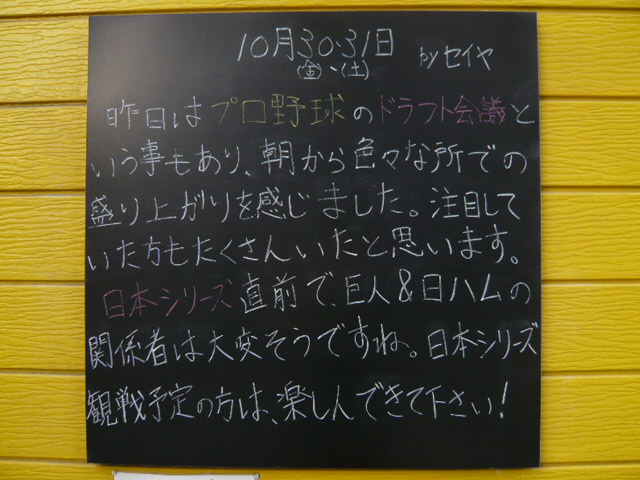 10月30・31日
(金)、(土)
by セイヤ
昨日はプロ野球のドラフト会議と
いう事もあり、朝から色々な所での
盛り上がりを感じました。注目して
いた方もたくさんいたと思います。
日本シリーズ直前で、巨人&日ハムの
関係者は大変そうですね。日本シリーズ
観戦予定の方は、楽しんできて下さい!